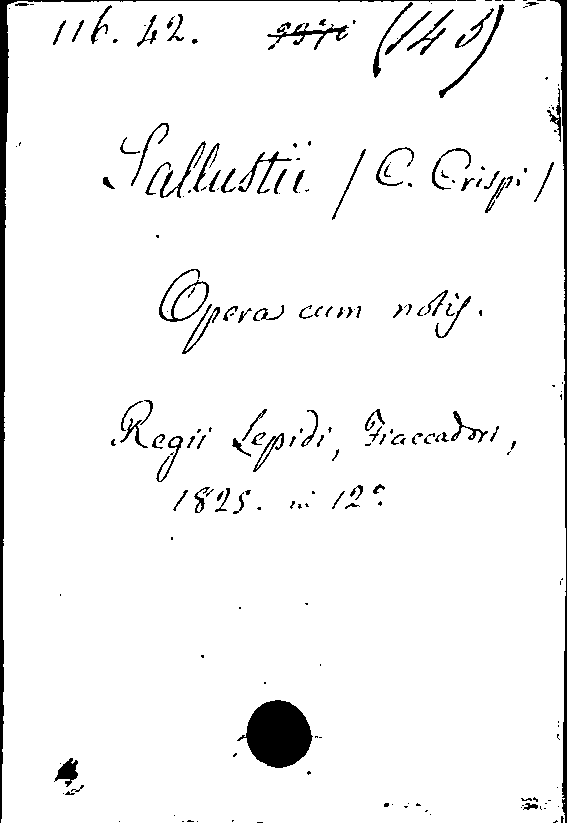 116. 42. (145)
Sallustii / C. Crispi /
Opera cum notis.
Regii Lepidi, Fiaccadori,
1825. in 12º